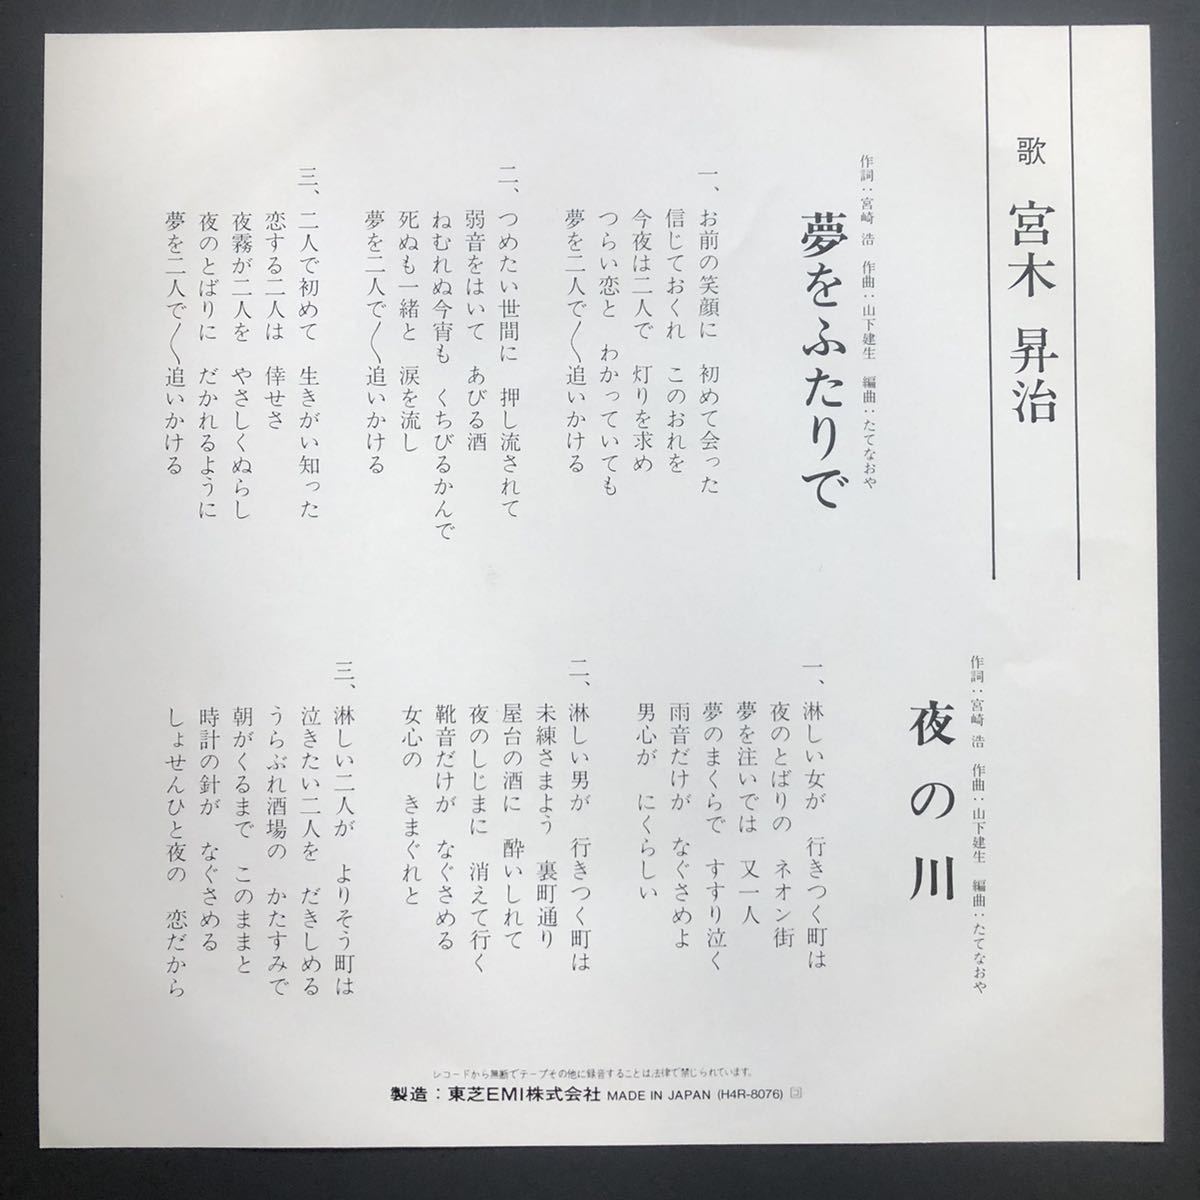 歌 宮木 昇治
作詞：宮崎 浩 作曲：山下建生 編曲：たてなおや
夢をふたりで
一、お前の笑顔に 初めて会った
信じておくれ このおれを
今夜は二人で 灯りを求め
つらい恋と わかっていても
夢を二人で〱追いかける
二、つめたい世間に 押し流されて
弱音をはいて あびる酒
ねむれぬ今宵も くちびるかんで
死ぬも一緒と 涙を流し
夢を二人で〱追いかける
三、二人で初めて 生きがい知った
恋する二人は 倖せさ
夜霧が二人を やさしくぬらし
夜のとばりに だかれるように
夢を二人で〱追いかける
作詞：宮崎 浩 作曲：山下建生 編曲：たてなおや
夜の川
一、淋しい女が 行きつく町は
夜のとばりの ネオン街
夢を注いでは 又一人
夢のまくらで すすり泣く
雨音だけが なぐさめよ
男心が にくらしい
二、淋しい男が 行きつく町は
未練さまよう 裏町通り
屋台の酒に 酔いしれて
夜のしじまに 消えて行く
靴音だけが なぐさめる
女心の きまぐれと
三、淋しい二人が よりそう町は
泣きたい二人を だきしめる
うらぶれ酒場の かたすみで
朝がくるまで このままと
時計の針が なぐさめる
しょせんひと夜の 恋だから
レコードから無断でテープその他に録音することは法律で禁じられています。
製造：東芝EMI株式会社 MADE IN JAPAN (H4R-8076) コ